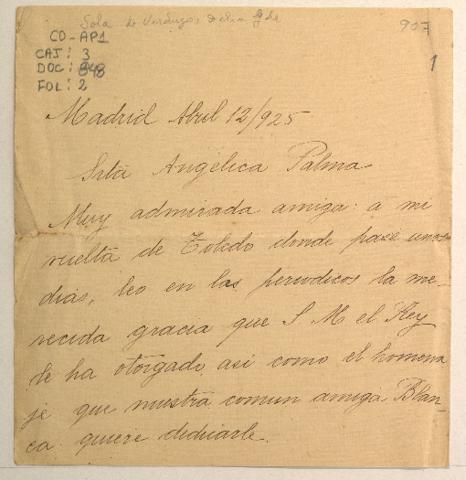 Sola de Verdugo, Delia G. de
907
CO-AP1
CAJ: 3
DOC: 848
FOL: 2
1
Madrid Abril 12/925
Srta Angélica Palma
Muy admirada amiga: a mi
vuelta de Toledo donde pasé unos
dias, leo en los periodicos la me-
recida gracia que S M el Rey
le ha otorgado, asi como el homena
je que nuestra comun amiga Blan-
ca quiere dedicarle.